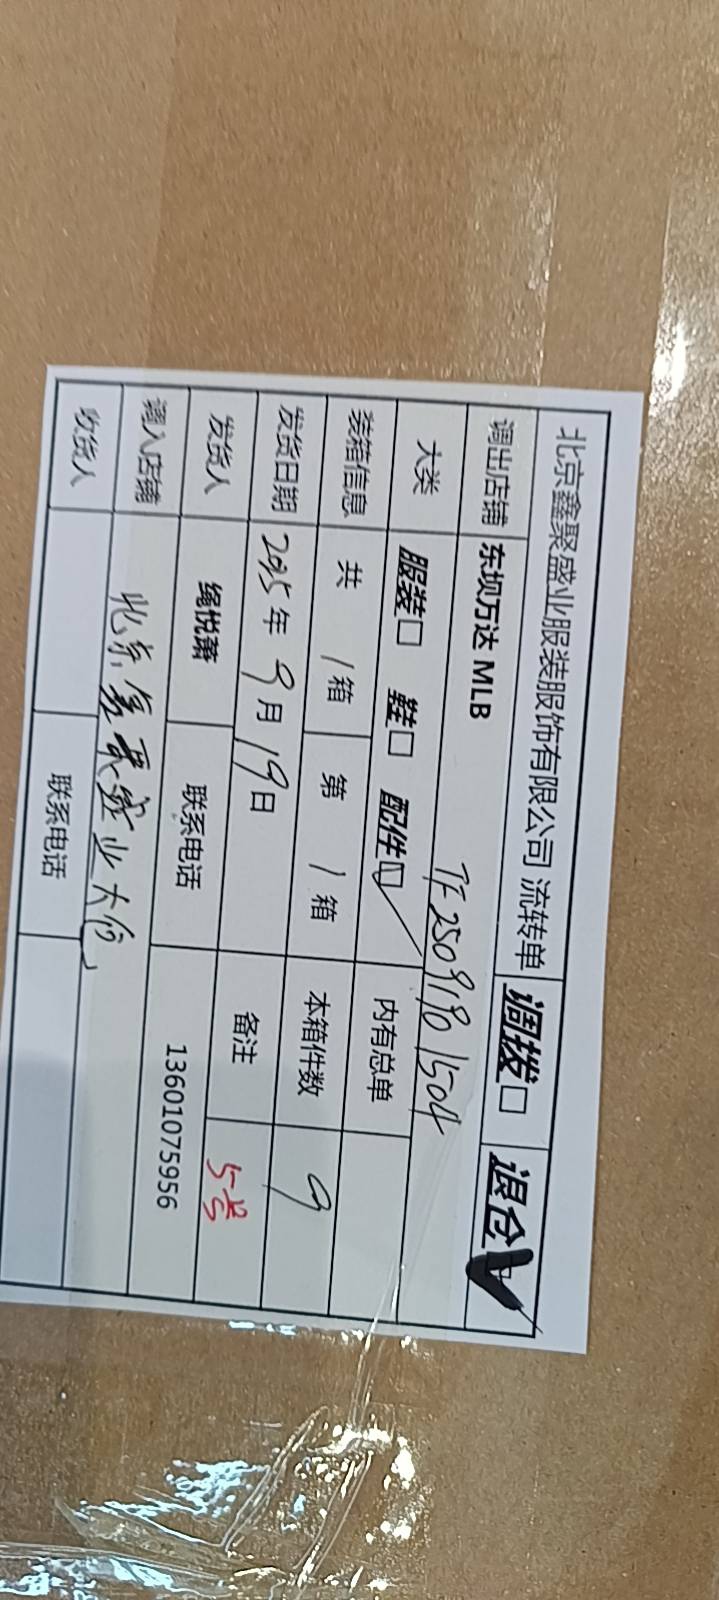 北京鑫聚盛业服装服饰有限公司 流转单 调拨□ 退仓☑
调出店铺 东坝万达 MLB TF25091901504
大类 服装□ 鞋□ 配件☑ 内有总单
装箱信息 共 1 箱 第 1 箱 本箱件数 9
发货日期 2025年9月19日 备注 5号
发货人 绳悦萧 联系电话 13601075956
调入店铺 北京鑫聚盛业大仓
收货人 联系电话